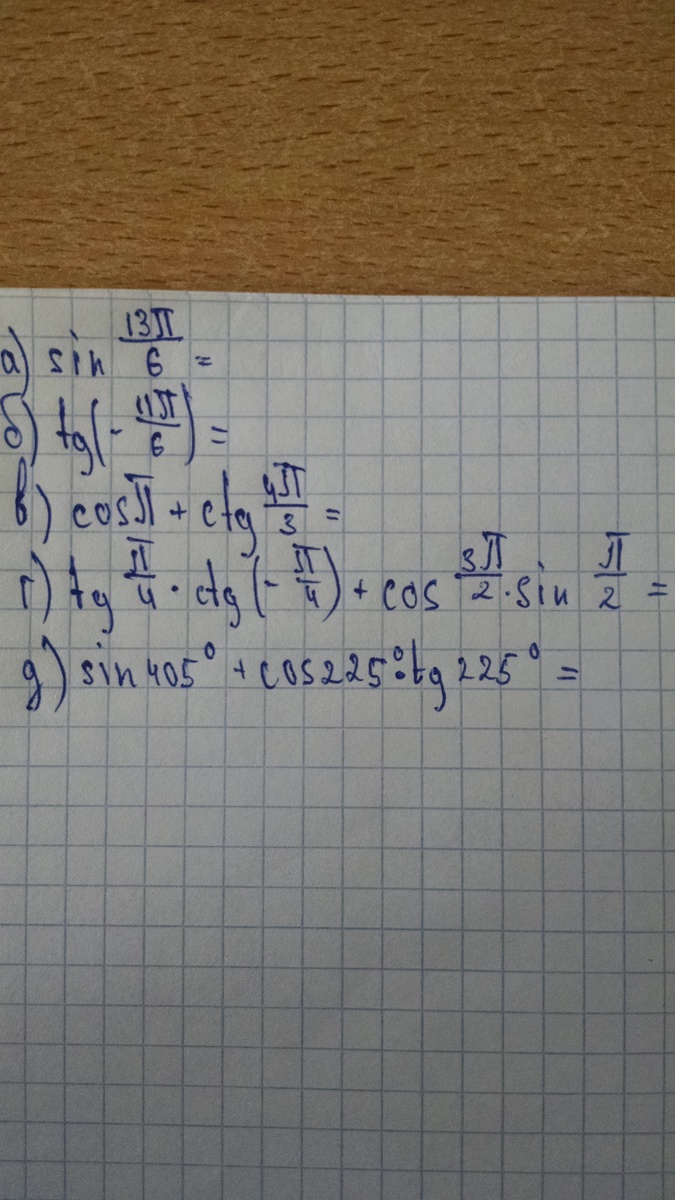 а) sin 13π/6 =
б) tg(-11π/6) =
в) cosπ + ctg 4π/3 =
г) tg π/4 · ctg(-π/4) + cos 3π/2 · sin π/2 =
д) sin405° + cos225°·tg225° =